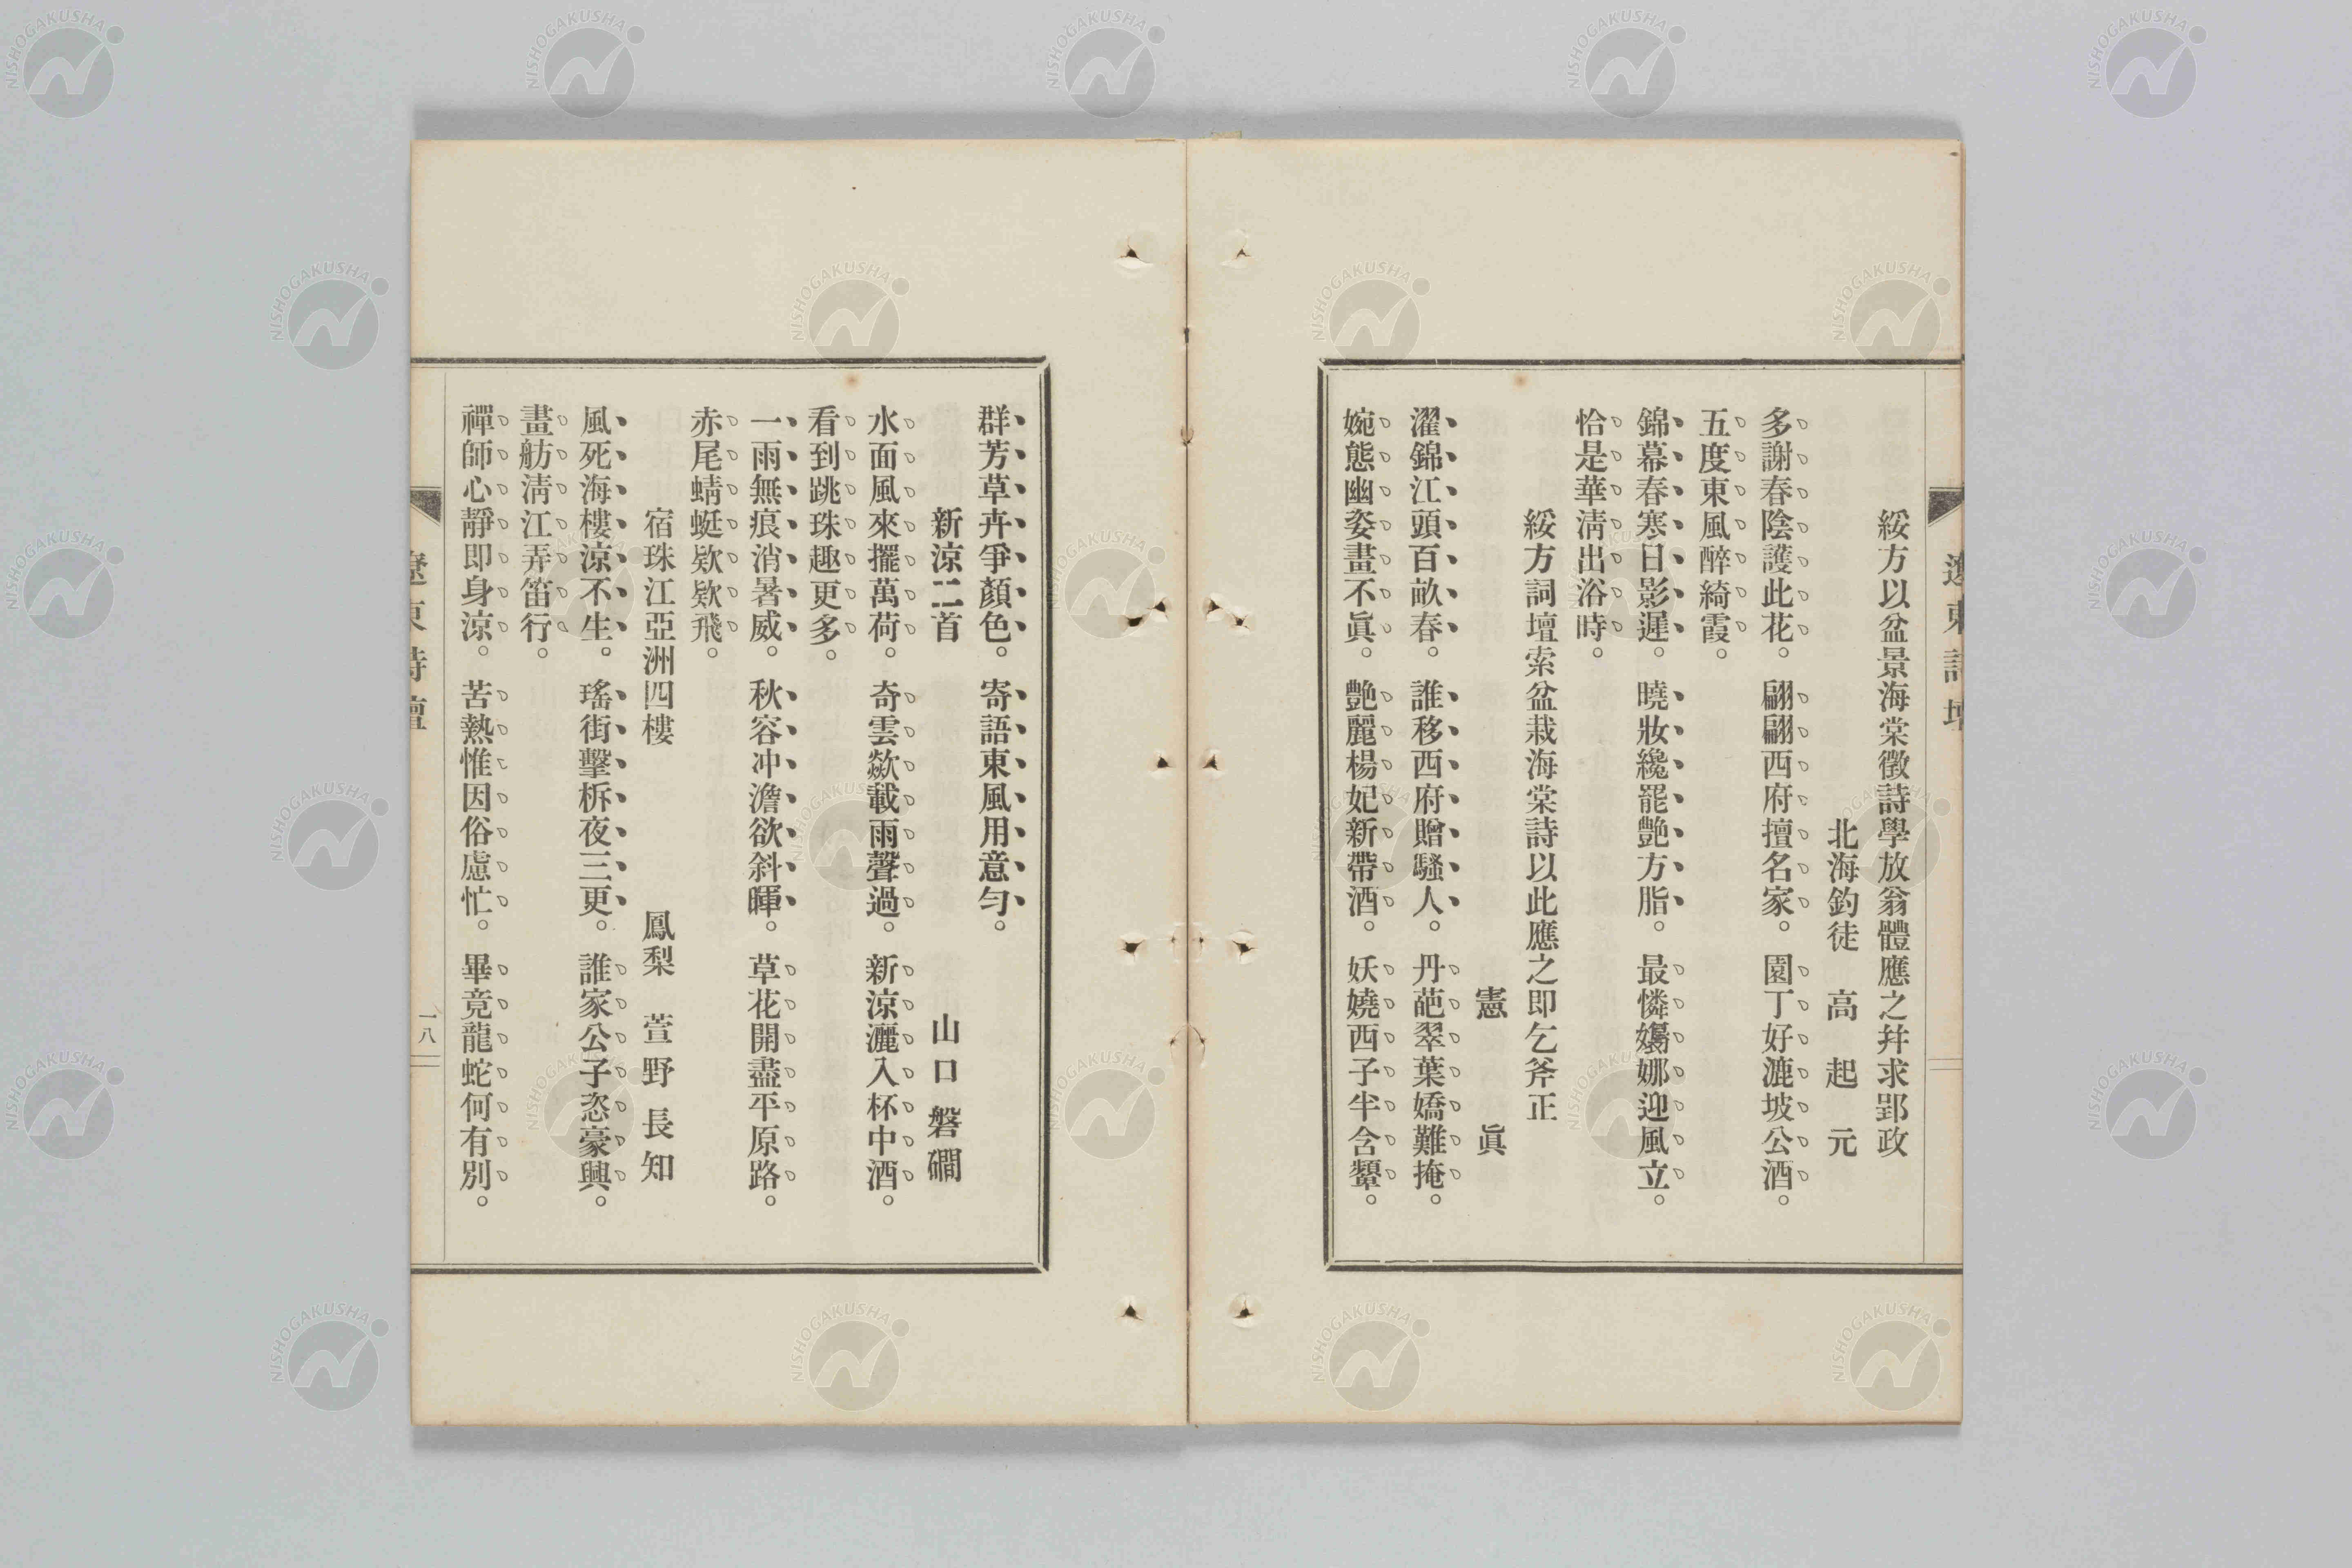 綏方以盆景海棠徵詩學放翁體應之幷求郢政
北海釣徒　高　起　元
多謝春陰護此花。翩翩西府擅名家。園丁好漉坡公酒。
五度東風醉綺霞。
錦幕春寒日影遲。曉妝纔罷艷方脂。最憐嬝娜迎風立。
恰是華淸出浴時。
綏方詞壇索盆栽海棠詩以此應之即乞斧正
憲　　　眞
濯錦江頭百畝春。誰移西府贈騷人。丹葩翠葉嬌難掩。
婉態幽姿畫不眞。艷麗楊妃新帶酒。妖嬈西子半含顰。
群芳草卉爭顏色。寄語東風用意勻。
新涼二首　　　山口磐磵
水面風來擺萬荷。奇雲歘載雨聲過。新涼灑入杯中酒。
看到跳珠趣更多。
一雨無痕消暑威。秋容冲澹欲斜暉。草花開盡平原路。
赤尾蜻蜓欵欵飛。
宿珠江亞洲四樓　　　鳳梨　萱野長知
風死海樓涼不生。瑤街擊柝夜三更。誰家公子恣豪興。
畫舫淸江弄笛行。
禪師心靜即身涼。苦熱惟因俗慮忙。畢竟龍蛇何有別。
遼東詩壇
一八
NISHOGAKUSHA